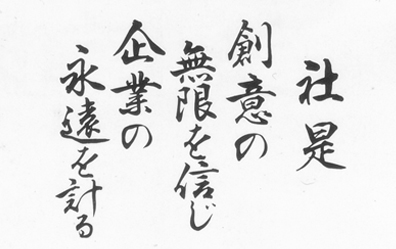 社是
創意の
無限を信じ
企業の
永遠を計る